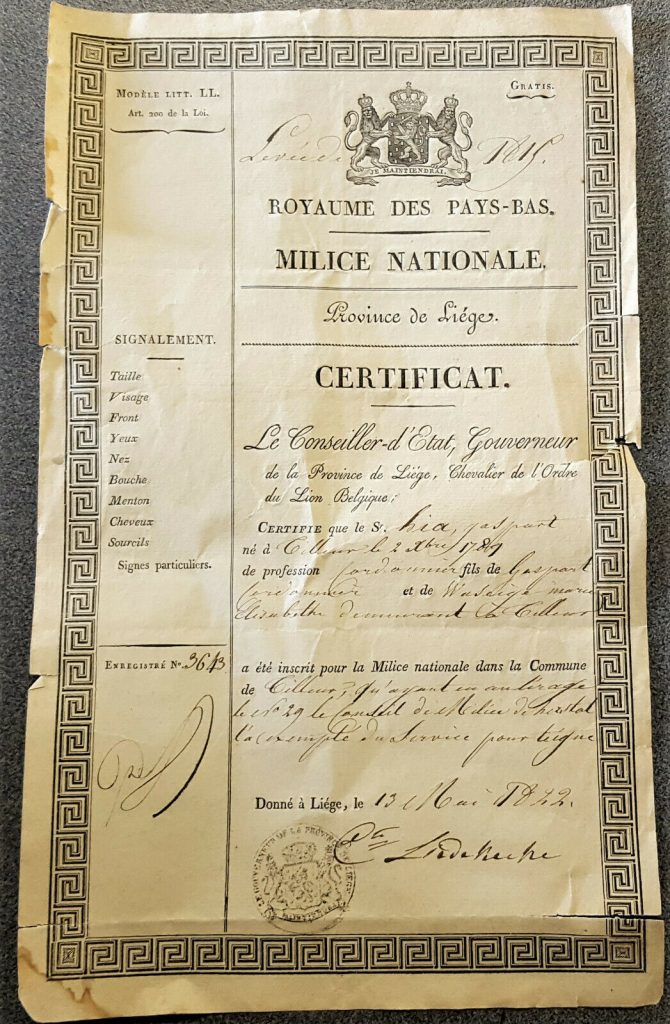 MODÈLE LITT. LL.
Art. 200 de la Loi.
GRATIS.
Levée de 1815.
JE MAINTIENDRAI.
ROYAUME DES PAYS-BAS.
MILICE NATIONALE.
Province de Liége.
CERTIFICAT.
Le Conseiller-d'Etat, Gouverneur
de la Province de Liége, Chevalier de l'Ordre
du Lion Belgique;
CERTIFIE que le Sr. hia, gaspart
né à Tilleur le 2 xbre 1789
de profession Cordonnier fils de Gaspart
Cordonnier et de Waseige marie
Elisabethe demeurant à Tilleur
a été inscrit pour la Milice nationale dans la Commune
de Tilleur, qu'ayant eu au tirage
le No 29 le Conseil de Milice de herstal
l'a exempté du Service pour teigne
Donné à Liége, le 13 Mai 1822.
SIGNALEMENT.
Taille
Visage
Front
Yeux
Nez
Bouche
Menton
Cheveux
Sourcils
Signes particuliers.
ENREGISTRÉ No. 3643
Liedekerke
LE GOUVERNEUR DE LA PROVINCE DE LIEGE